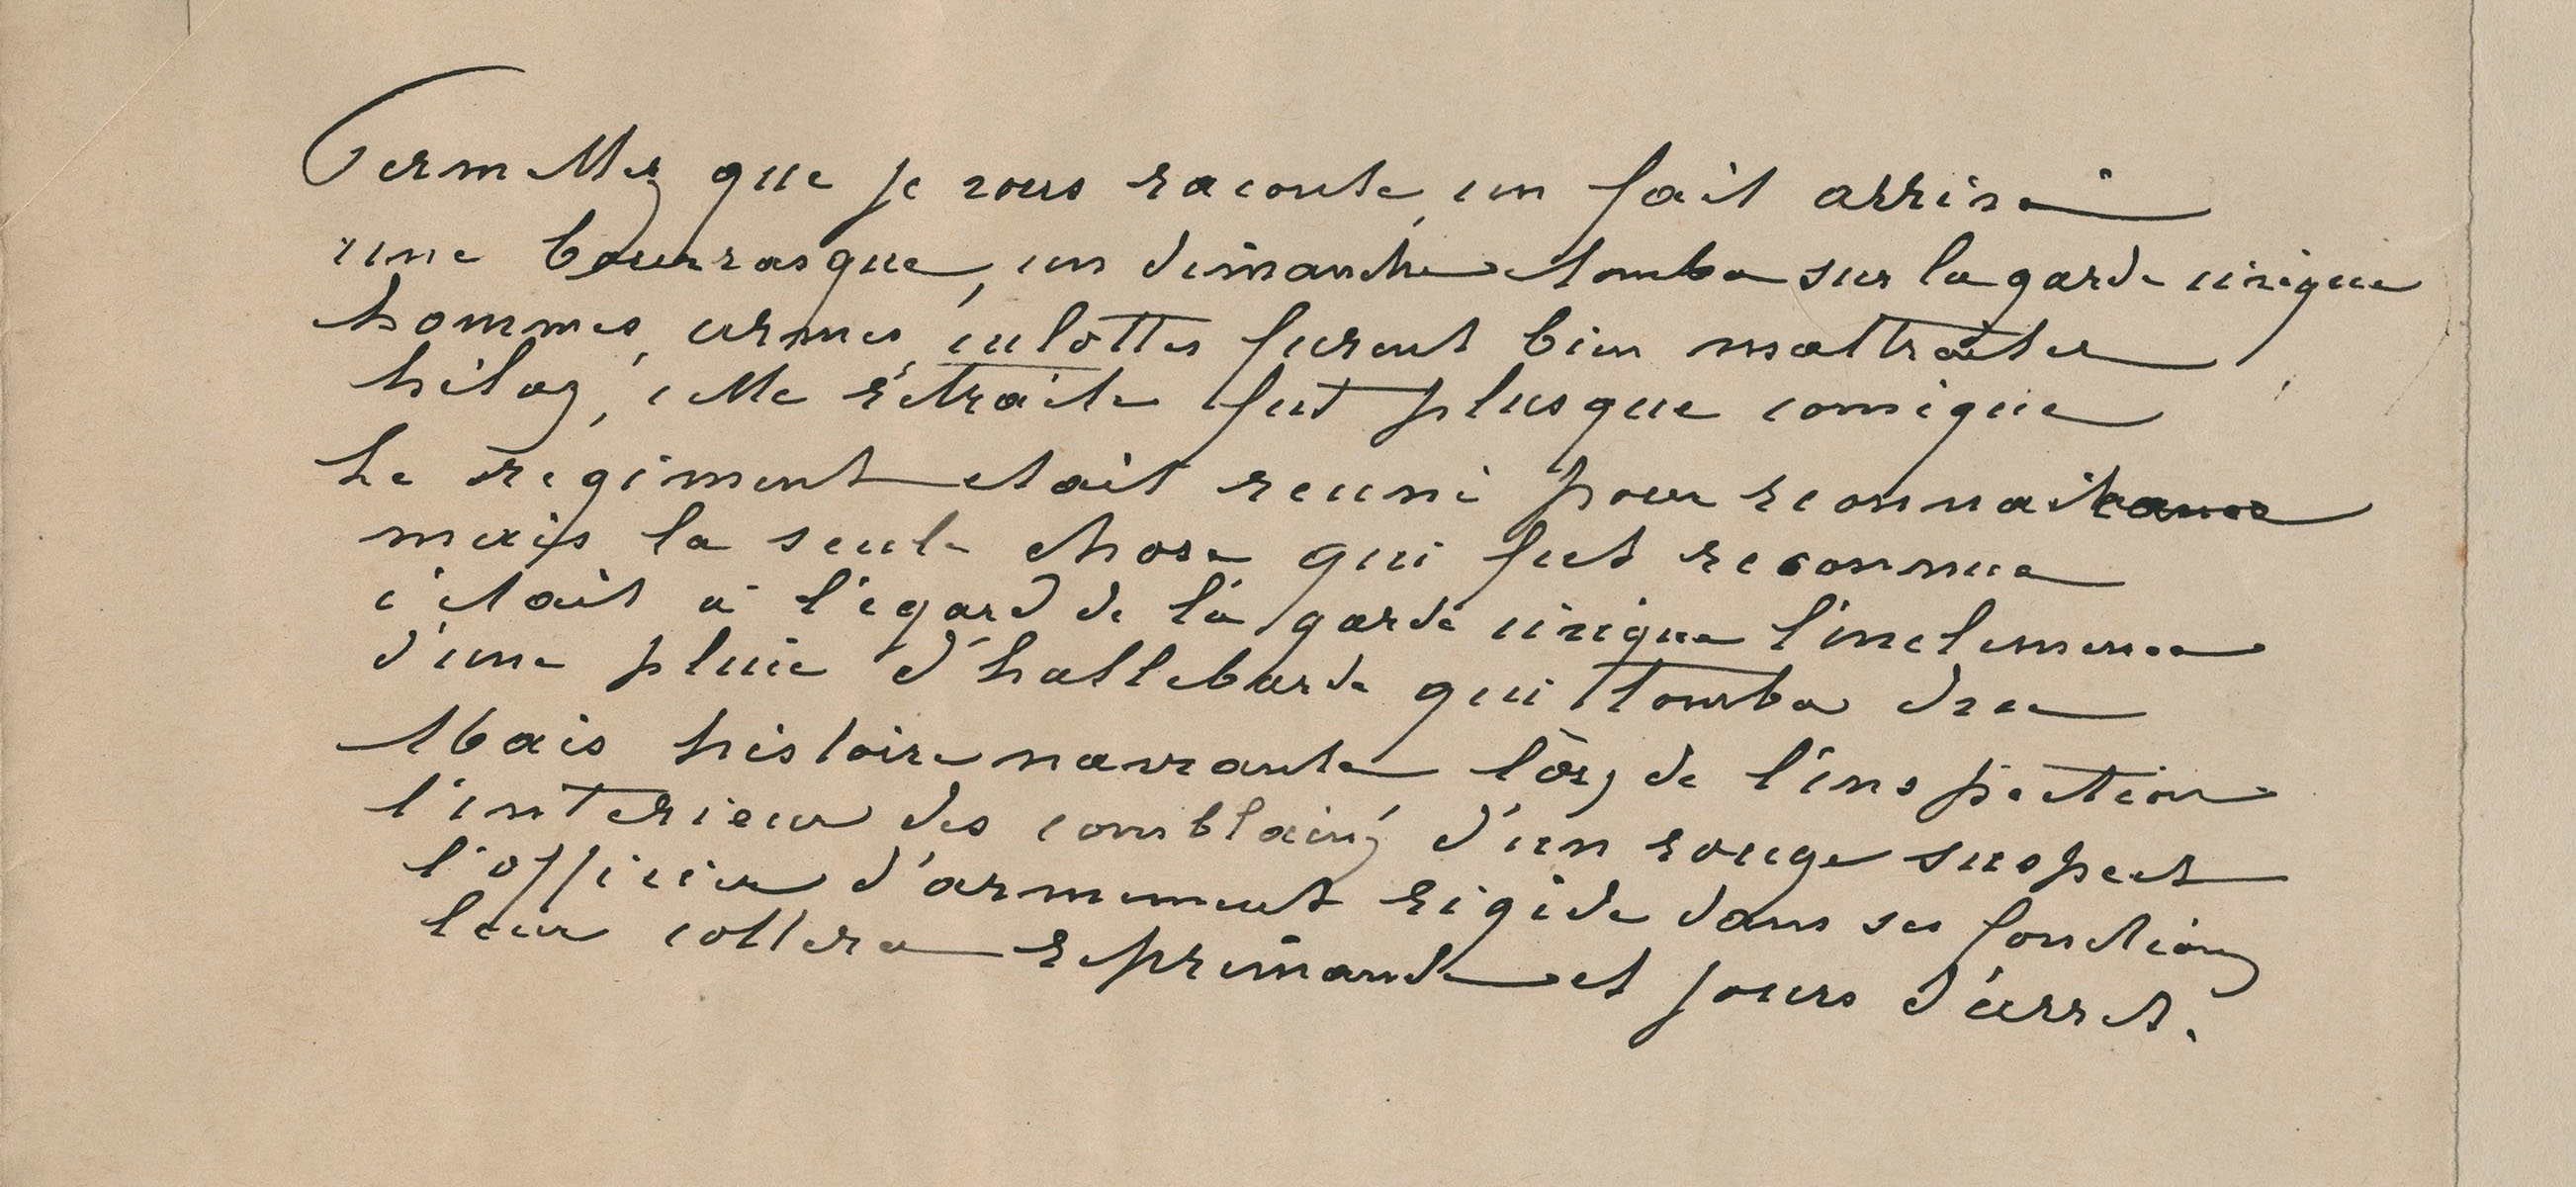 Permettez que je vous raconte, un fait arrivé
une bourrasque, un dimanche tomba sur la garde civique
hommes, armes, culottes furent bien maltraites
hélaz, cette rétraite fut plusque comique
Le regiment etait reuni pour reconnaitance
mais la seule chose qui fut reconnue
c'etait a l'egard de la garde civique l'inclemence
d'une pluie d'hallebarde qui tomba drue
Mais histoire navrante lorz de l'inspection
l'interieur des comblainz d'un rouge suspect
l'officier d'armement rigide dans ses fonctionz
leur collera reprimande et jours d'arret.